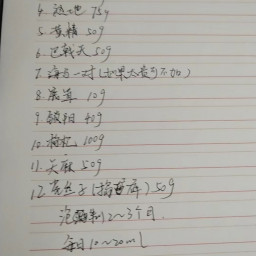 4. 熟地 75g
5. 黄精 50g
6. 巴戟天 50g
7. 海马一对(如果太贵可不加)
8. 10g
9. 锁阳 40g
10. 枸杞 100g
11. 50g
12. 菟丝子( ) 50g
泡制2~3个月.
每日10~20ml